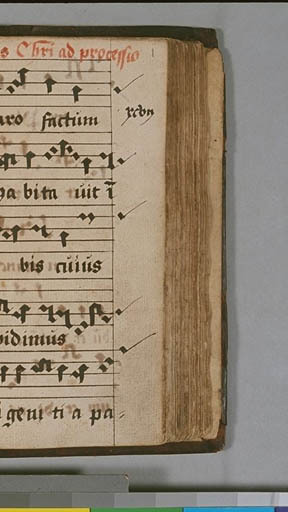 s Chri ad processio
1
aro factum
xcvij
habita uit ī
bis cuius
vidimus
igeni ti a pa-